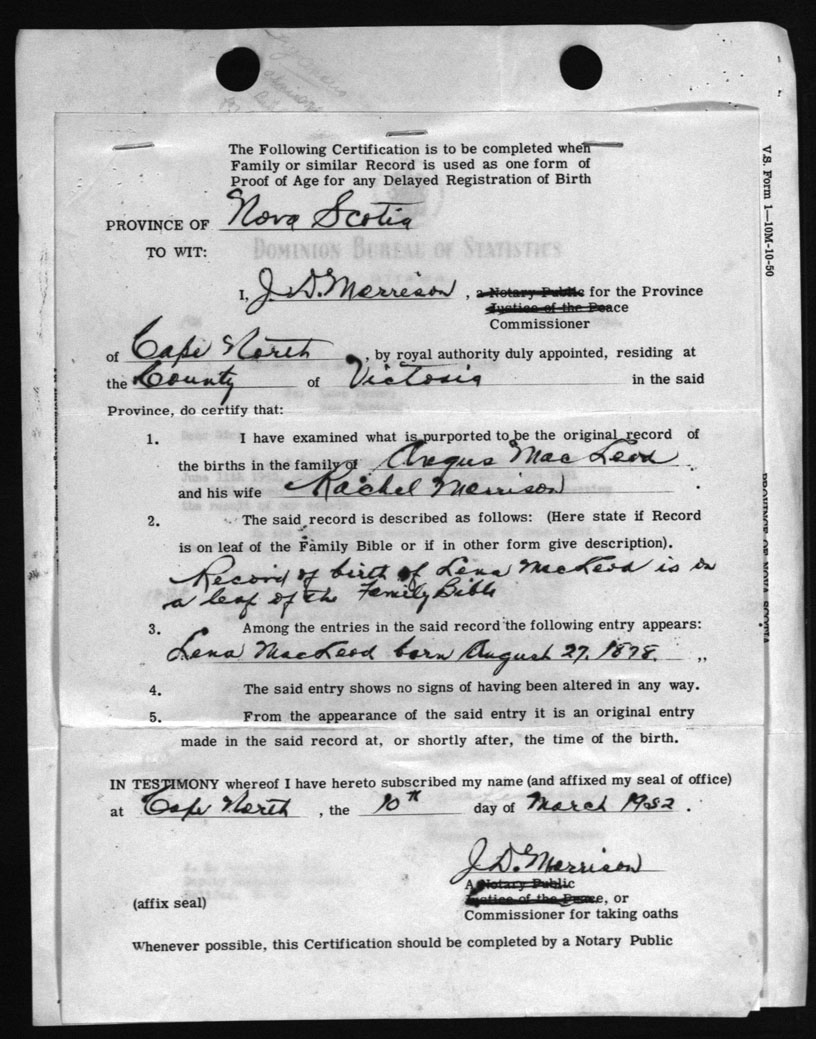 The Following Certification is to be completed when
Family or similar Record is used as one form of
Proof of Age for any Delayed Registration of Birth
PROVINCE OF Nova Scotia
TO WIT:
DOMINION BUREAU OF STATISTICS
OTTAWA
I, J. D. Morrison, a Notary Public for the Province
Justice of the Peace
Commissioner
of Cape North, by royal authority duly appointed, residing at
the County of Victoria in the said
Province, do certify that:
1. I have examined what is purported to be the original record of
the births in the family of Angus MacLeod
and his wife Rachel Morrison
2. The said record is described as follows: (Here state if Record
is on leaf of the Family Bible or if in other form give description).
Record of birth of Lena MacLeod is on
a leaf of the Family Bible
3. Among the entries in the said record the following entry appears:
Lena MacLeod born August 27, 1878. „
4. The said entry shows no signs of having been altered in any way.
5. From the appearance of the said entry it is an original entry
made in the said record at, or shortly after, the time of the birth.
IN TESTIMONY whereof I have hereto subscribed my name (and affixed my seal of office)
at Cape North, the 10th day of March 1952.
J. D. Morrison
A Notary Public
Justice of the Peace, or
(affix seal)
Commissioner for taking oaths
Whenever possible, this Certification should be completed by a Notary Public
V.S. Form 1—10M-10-50
PROVINCE OF NOVA SCOTIA